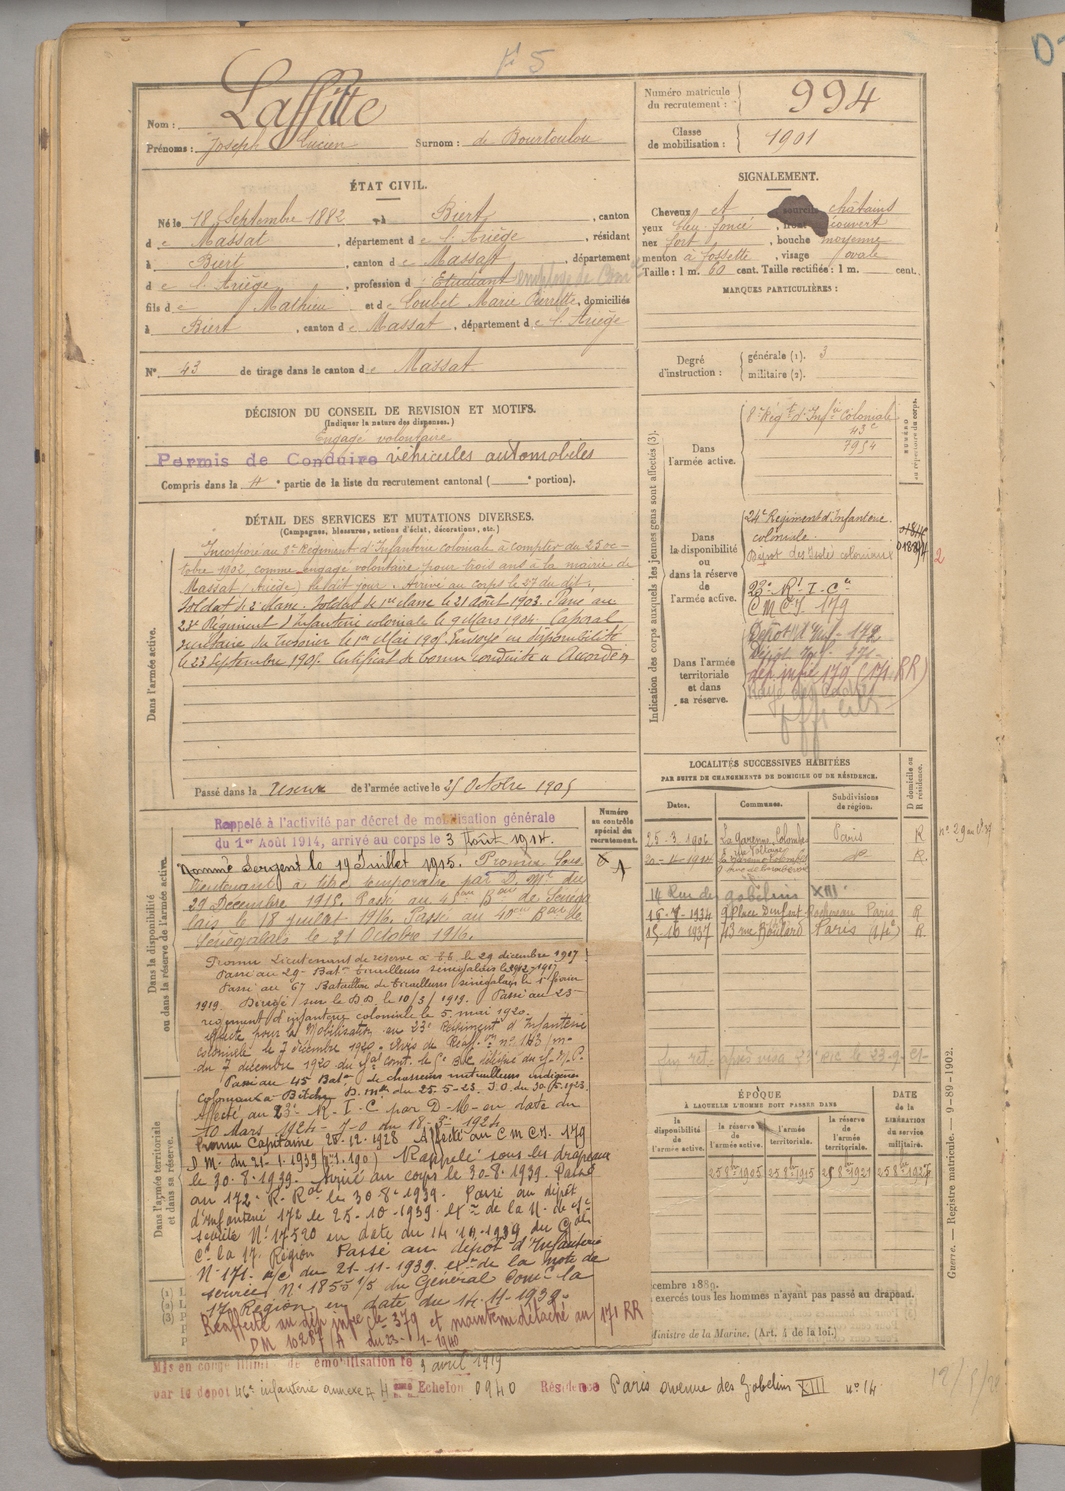 N° 5
Nom : Laffitte
Prénoms : Joseph Lucien Surnom : de Bourtoulou
Numéro matricule du recrutement : 994
Classe de mobilisation : 1901
ÉTAT CIVIL.
Né le 18 Septembre 1882 à Biert, canton
de Massat, département de l'Ariège, résidant
à Biert, canton de Massat, département
de l'Ariège, profession d'Etudiant employé de Com
fils de Mathieu et de Loubet Marie Pierrette, domiciliés
à Biert, canton de Massat, département de l'Ariège
N° 43 de tirage dans le canton de Massat
SIGNALEMENT.
Cheveux et sourcils châtains
yeux bleu foncé, front découvert
nez fort, bouche moyenne
menton à fossette, visage ovale
Taille : 1 m. 60 cent. Taille rectifiée : 1 m. cent.
MARQUES PARTICULIÈRES :
Degré d'instruction : générale (1). 3
militaire (2).
DÉCISION DU CONSEIL DE REVISION ET MOTIFS.
(Indiquer la nature des dispenses.)
Engagé volontaire
Permis de Conduire véhicules automobiles
Compris dans la 4e partie de la liste du recrutement cantonal ( e portion).
DÉTAIL DES SERVICES ET MUTATIONS DIVERSES.
(Campagnes, blessures, actions d'éclat, décorations, etc.)
Dans l'armée active.
Incorporé au 8e Régiment d'Infanterie coloniale à compter du 23 oc-
tobre 1902, comme engagé volontaire pour trois ans à la mairie de
Massat (Ariège) le dit jour. Arrivé au corps le 27 du dit;
Soldat de 2e classe. Soldat de 1re classe le 21 août 1903. Passé au
Régiment d'Infanterie coloniale le 9 Mars 1904. Caporal
secrétaire du trésorier le 1er Mai 1905. Envoyé en disponibilité
le 23 Septembre 1905. Certificat de bonne conduite "Accordé"
Passé dans la réserve de l'armée active le 25 Octobre 1905
Indication des corps auxquels les jeunes gens sont affectés (3).
Dans l'armée active.
8e Régt d'Infie Coloniale
43e
7954
NUMÉRO au répertoire du corps.
Dans la disponibilité ou dans la réserve de l'armée active.
24e Régiment d'Infanterie
coloniale
Dépot des Isolés coloniaux
23e R.I.Cle
CMCI 179
Dans l'armée territoriale et dans sa réserve.
Dépôt d'Inf. 172
Dépôt Inf. 171
dép infie 179 (171 RR)
LOCALITÉS SUCCESSIVES HABITÉES
PAR SUITE DE CHANGEMENTS DE DOMICILE OU DE RÉSIDENCE.
Dates. Communes. Subdivisions de région. D domicile ou R résidence.
25-3-1906 La Garenne Colombes Paris R
20-4-1914 la Garenne Colombes do R.
14 Rue des gobelins XIII
15-7-1934 9 Place Denfert Rochereau Paris R
15-10-1937 43 rue Boulard Paris R.
Dans la disponibilité ou dans la réserve de l'armée active.
Numéro au contrôle spécial du recrutement.
Rappelé à l'activité par décret de mobilisation générale
du 1er Août 1914, arrivé au corps le 3 Août 1914.
Nommé Sergent le 19 Juillet 1915. Promu Sous
Lieutenant à titre temporaire par D. Mlle du
29 Décembre 1915. Passé au 45ème Bon de Sénéga
lais le 18 juillet 1916. Passé au 40ème Bon de
Sénégalais le 21 Octobre 1916.
Promu Lieutenant de réserve à TT. le 29 décembre 1917
Passé au 29e Batn tirailleurs sénégalais le 29-12-1917
Passé au 67 Bataillon de tirailleurs sénégalais le 1er février
1919. Dirigé sur le DD. le 10/3/1919. Passé au 23e
régiment d'infanterie coloniale le 5 mai 1920.
affecté pour la Mobilisation au 23e Régiment d'Infanterie
coloniale le 7 décembre 1920.
du 7 décembre 1920
Passé au 45 Batn de chasseurs mitrailleurs indigènes
coloniaux à Bitche D. Mlle du 25-5-23. J.O. du 30-5-1923
affecté au 23e R.I.C par D-M- en date du
10 Mars 1924 - J-O du 18-3-1924
Promu Capitaine 25.12.1928 Affecté au CMCI. 179
D.M. du 21-1-1939 Rappelé sous les drapeaux
le 30-8-1939. Arrivé au corps le 30-8-1939. Passé
au 172e R. Ral le 30 8e 1939. Passé au dépôt
d'Infanterie 172 le 25-10-1939. exon de la N. de S-
service N° 17520 en date du 14 10-1939 du Gal
Ct la 17. Région Passé au dépôt d'Infanterie
N° 171. a/c du 21-11-1939. exon de la note de
service N° 1855 1/5 du Général Comt la
17e Région en date du 14-11-1939.
Réaffecté au dép infie 179 et maintenu détaché au 171 RR
DM 10287/A du 23-1-1940
Dans l'armée territoriale et dans sa réserve.
ÉPOQUE
À LAQUELLE L'HOMME DOIT PASSER DANS
la disponibilité de l'armée active. la réserve de l'armée active. l'armée territoriale. la réserve de l'armée territoriale.
DATE de la LIBÉRATION du service militaire.
25 8bre 1905 25 8bre 1915 25 8bre 1921 25 8bre 1927
décembre 1889.
exercés tous les hommes n'ayant pas passé au drapeau.
Ministre de la Marine. (Art. 4 de la loi.)
Guerre. — Registre matricule. — 9-89-1902.
Mis en congé illimité de démobilisation le 3 avril 1919
par le dépôt 46e infanterie annexe 4 Echelon 0940 Résidence Paris avenue des Gobelins XIII n° 14